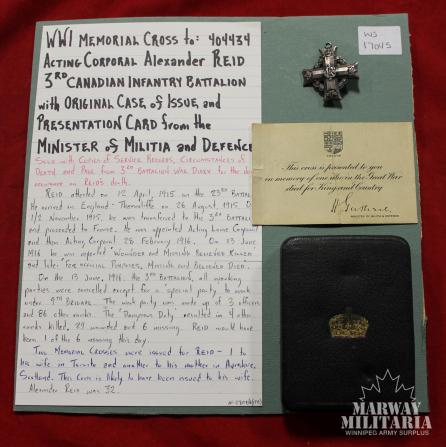 WWI MEMORIAL CROSS to: 404434
ACTING CORPORAL ALEXANDER REID
3RD CANADIAN INFANTRY BATTALION
with ORIGINAL CASE of ISSUE, and
PRESENTATION CARD from the
MINISTER of MILITIA and DEFENCE
SOLD with COPIES of SERVICE RECORDS, CIRCUMSTANCES of
DEATH and PAGE from 3RD BATTALION WAR DIARY for the day
on REID'S death.
REID attested on 12 April, 1915 in the BATTAL
He arrived in ENGLAND on 26 August, 1915. On
1/2 November, 1915, he was transferred to the 3RD BATTALI
and proceeded to France. He was appointed Acting Lance Corporal
and then Acting Corporal 28 February 1916. On 13 June
1916 he was reported "WOUNDED and MISSING BELIEVED KILLED
but later "FOR OFFICIAL PURPOSES, MISSING AND BELIEVED DIED.
On the 13 June, 1916, the 3RD BATTALION, all working
parties were cancelled except for a "special party" to work
under 9TH BRIGADE. The work party was made up of 3 officers
and 86 other ranks. The "Dangerous Duty" resulted in 4 other
ranks killed, 29 wounded and 6 missing. REID would have
been 1 of the 6 missing this day.
TWO MEMORIAL CROSSES were issued for REID - 1 to
his wife in Toronto and another to his mother in
Scotland. This CROSS is likely to have been issued to his wife.
Alexander Reid was 32.
WS
17045
This cross is presented to you
in memory of one who in the Great War
died for King and Country
MINISTER OF MILITIA & DEFENCE
MARWAY
MILITARIA
WINNIPEG ARMY SURPLUS